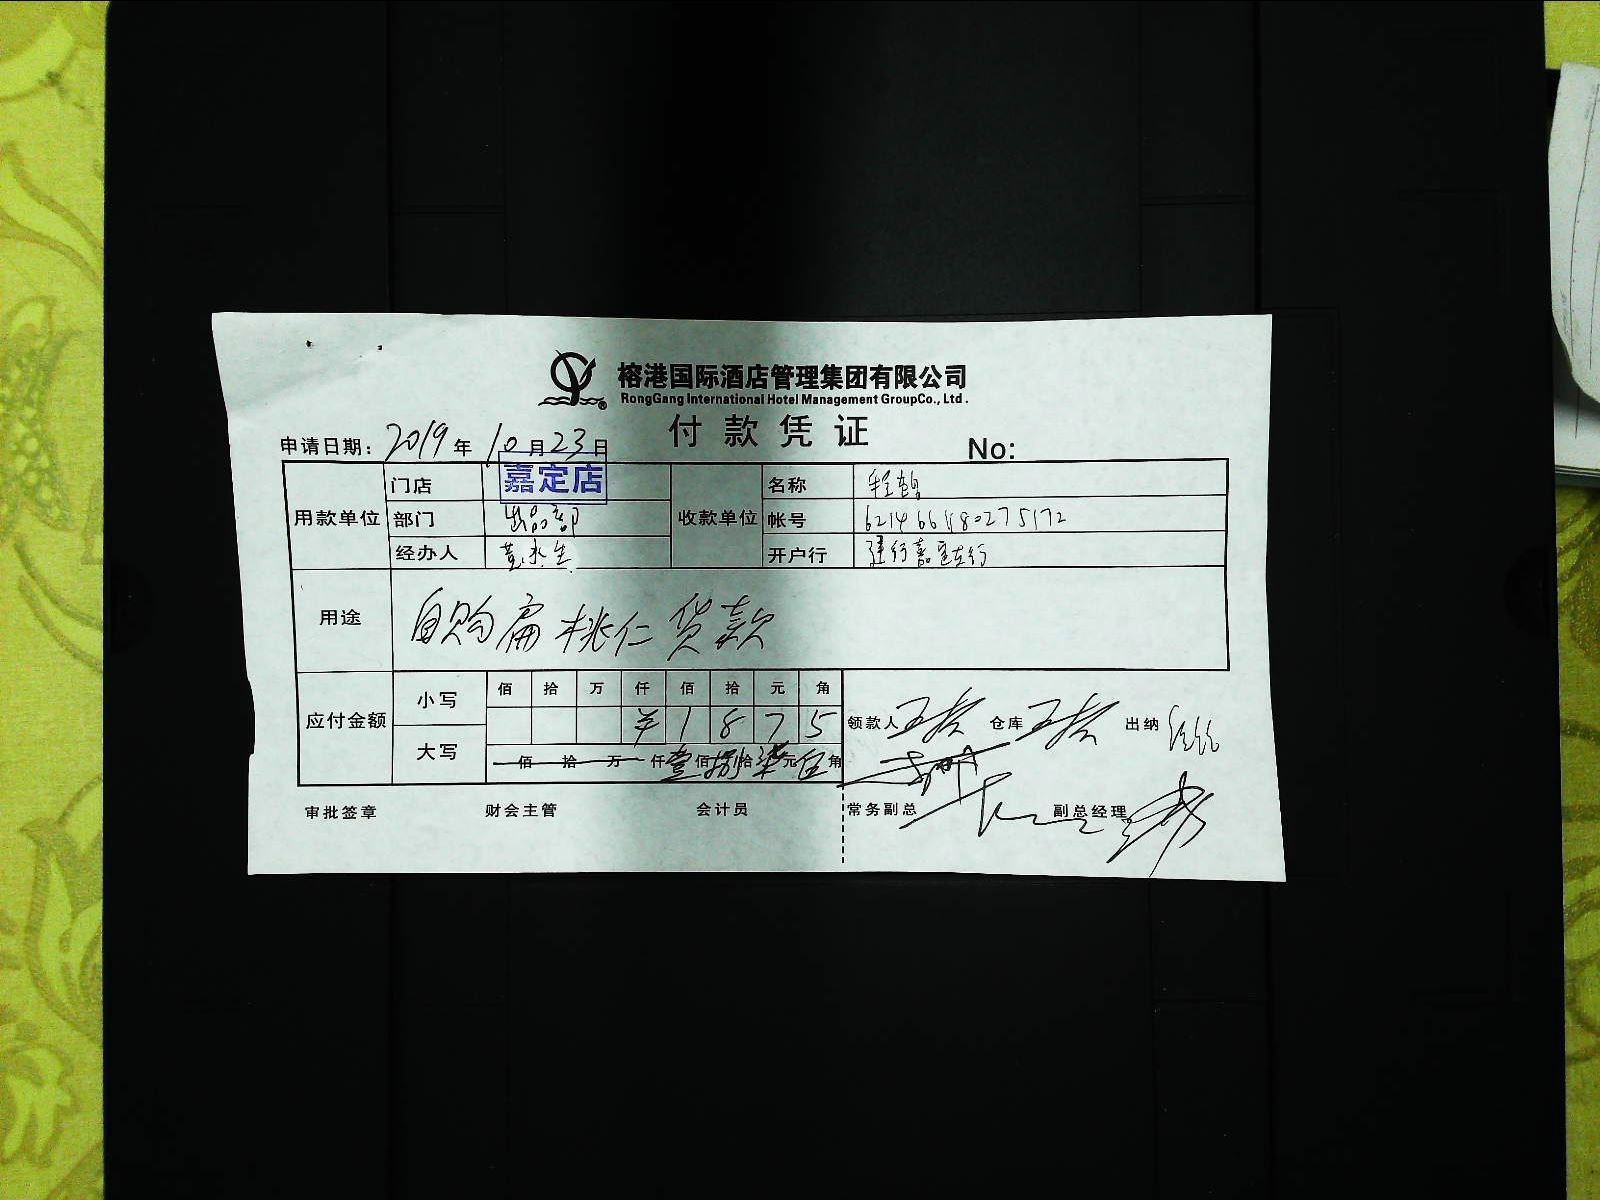 榕港国际酒店管理集团有限公司
RongGang International Hotel Management GroupCo., Ltd.
付款凭证
申请日期：2019年10月23日
No:
用款单位
门店 嘉定店
部门 出品部
经办人 黄水生
收款单位
名称
帐号
开户行 建行嘉定支行
用途 自购扁桃仁货款
应付金额
小写
佰 拾 万 仟 佰 拾 元 角
¥ 1 8 7 5
大写
佰 拾 万 仟 壹 佰 捌 拾 柒 元 伍 角
领款人 仓库 出纳
审批签章 财会主管 会计员 常务副总 副总经理